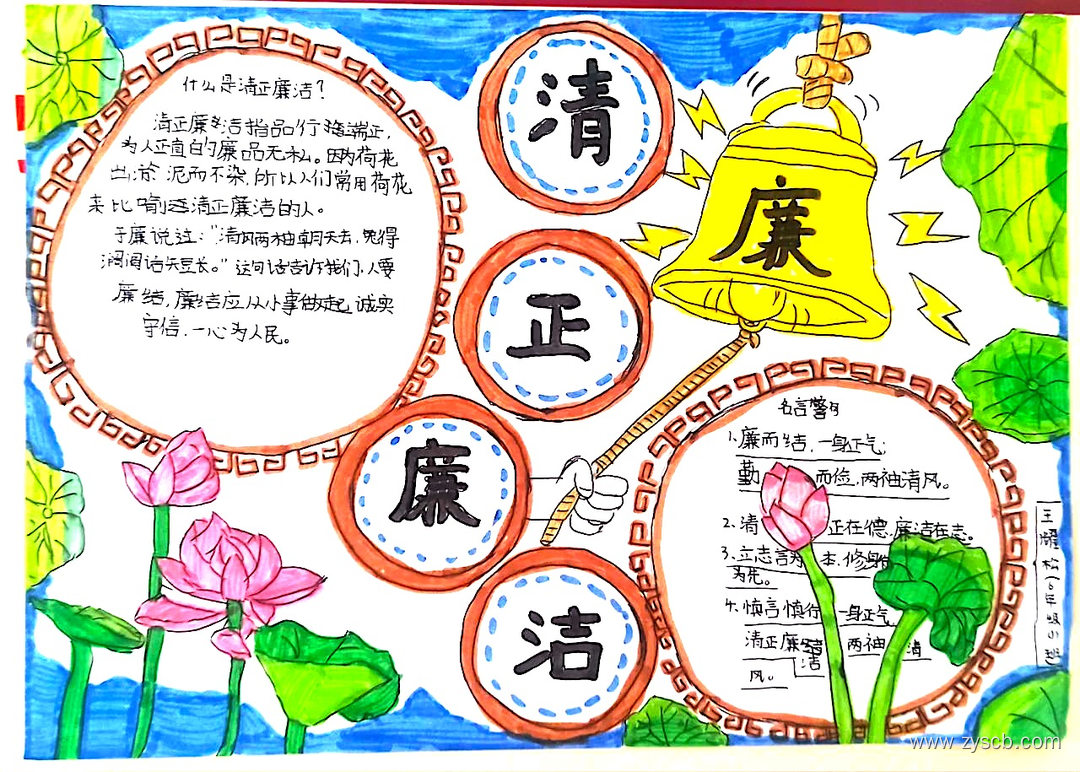 什么是清正廉洁？
清正廉洁指品行端正，
为人正直的廉品无私。因为荷花
出淤泥而不染，所以人们常用荷花
来比喻清正廉洁的人。
于廉说过："清风两袖朝天去，免得
闾阎话矢豆长。"这句话告诉我们，人要
廉结，廉结应从小事做起，诚实
守信，一心为人民。
清
正
廉
洁
廉
名言警句
1.廉而结，一身正气；
勤而俭，两袖清风。
2.清正在德，廉洁在志。
3.立志言为本，修身
为先。
4.慎言慎行一身正气
清正廉洁两袖清
风。
王
www.zyscb.com